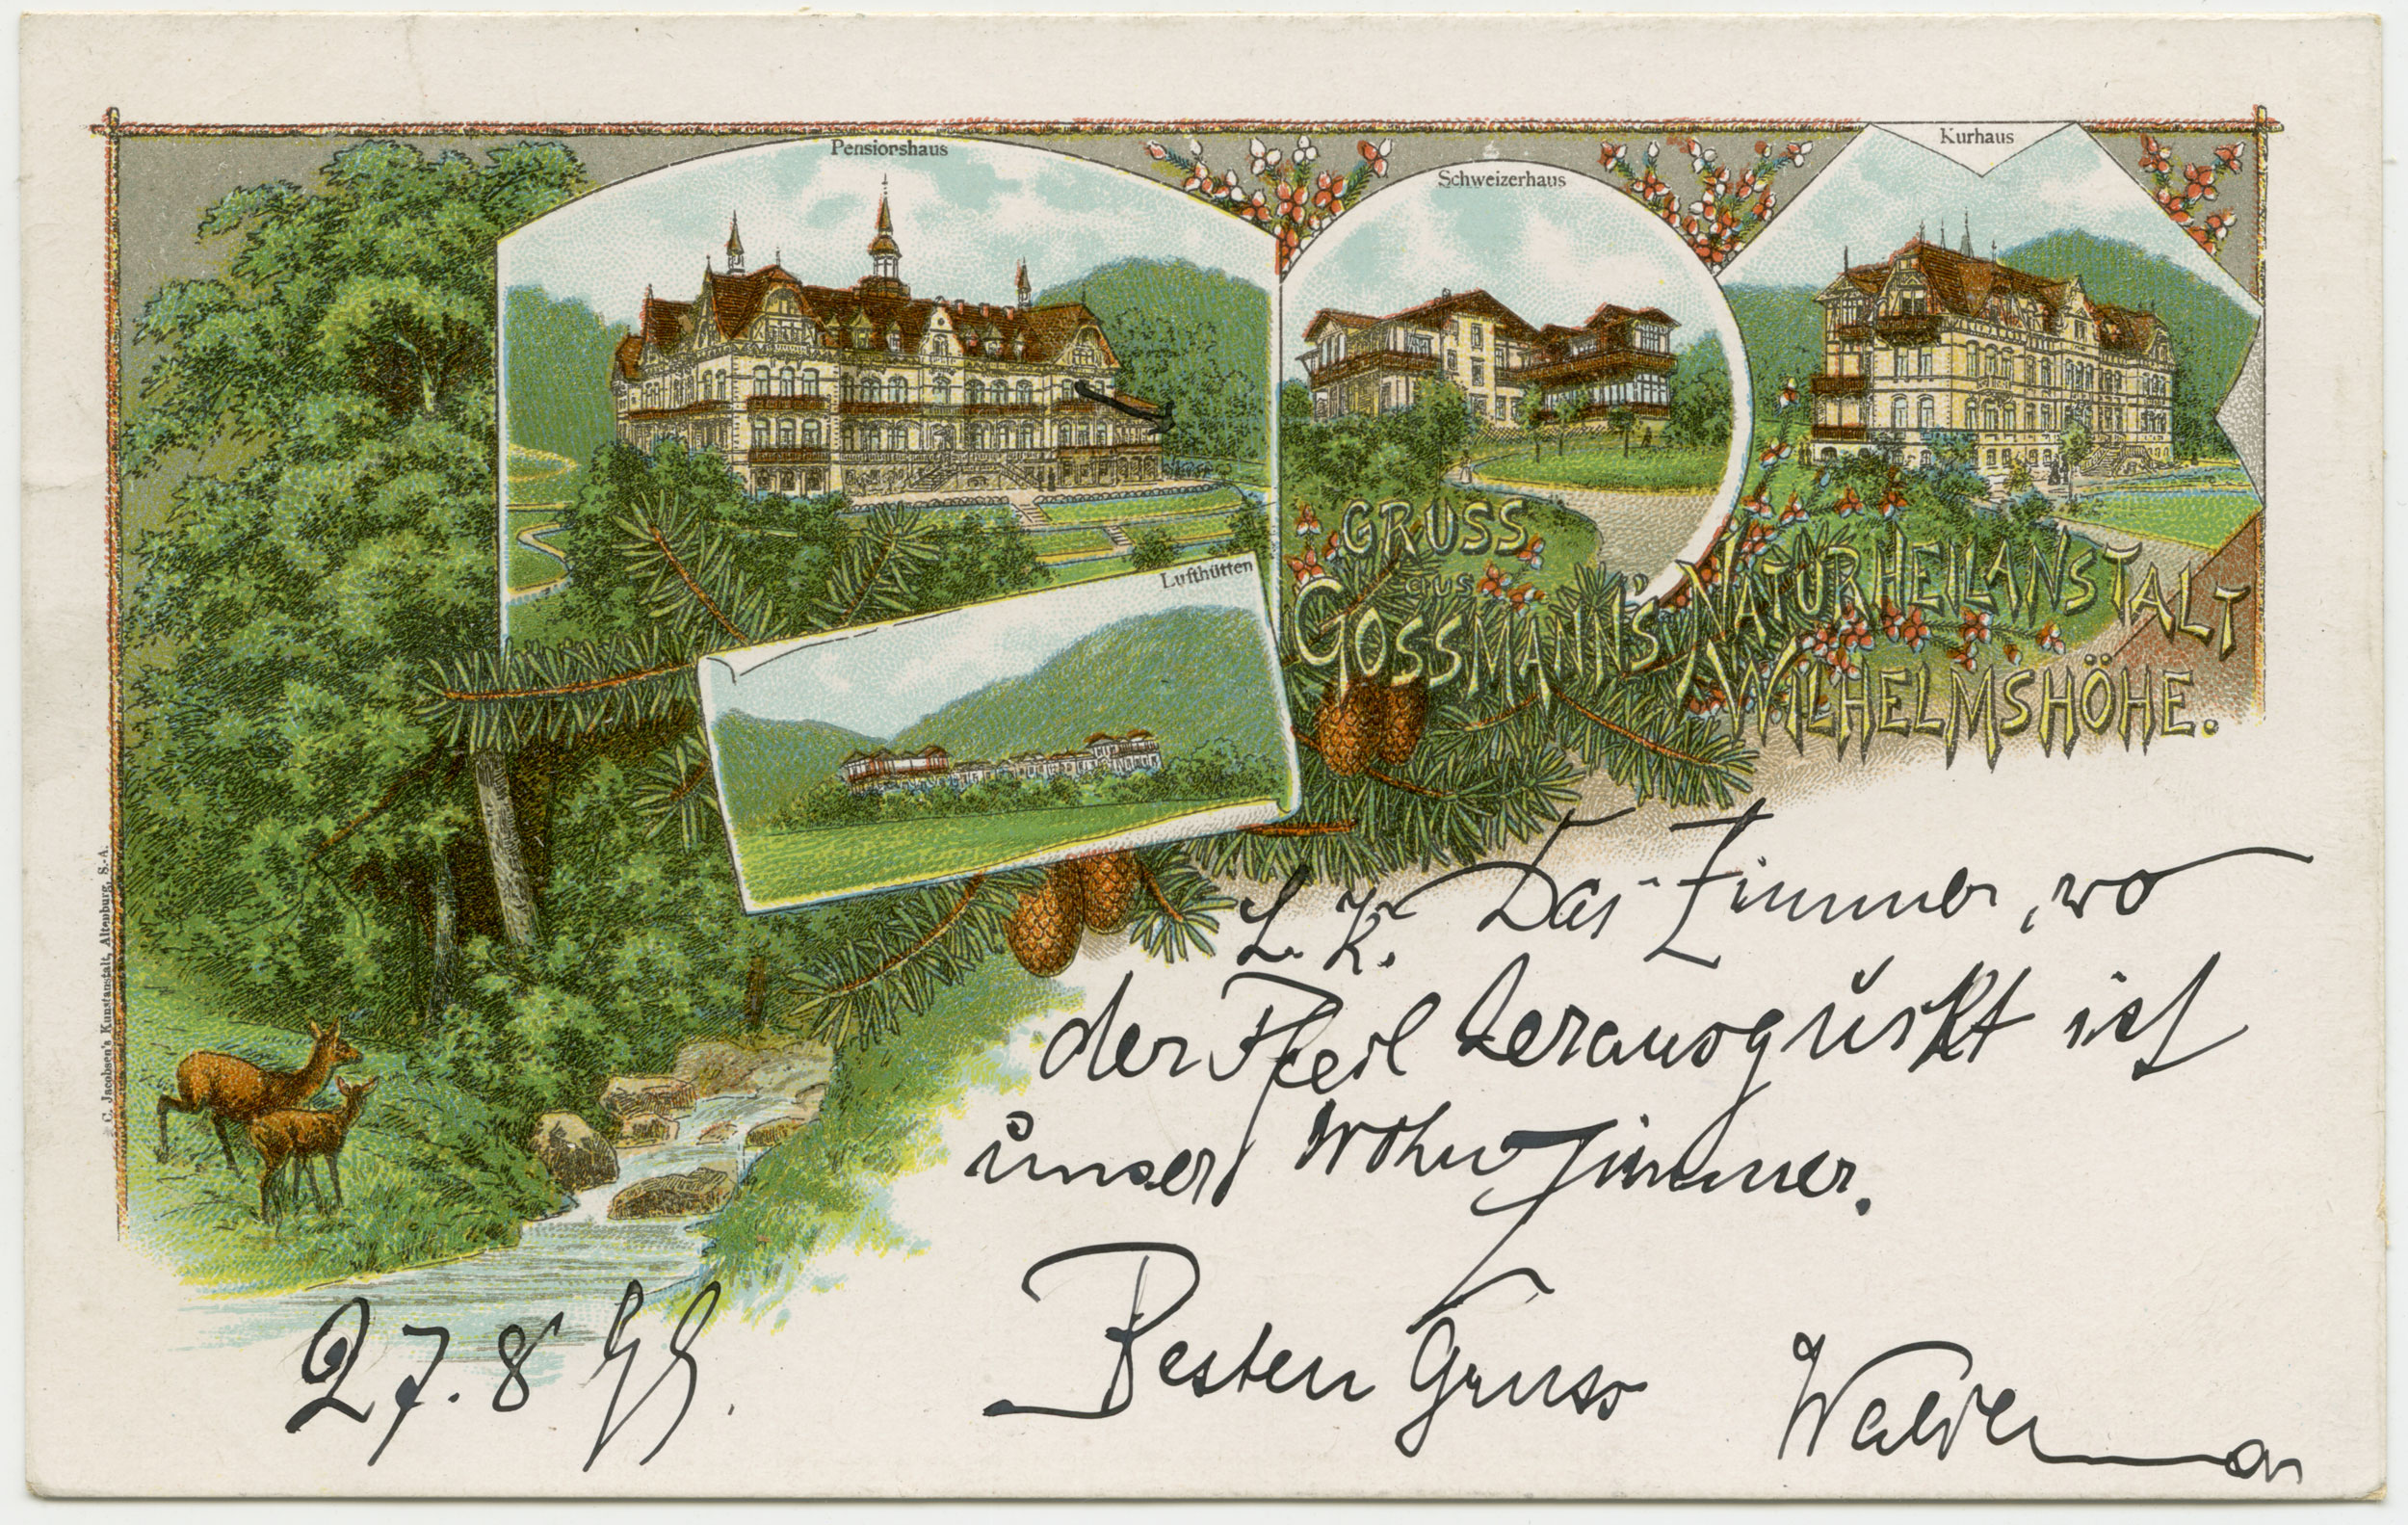 Pensionshaus
Schweizerhaus
Kurhaus
Lufthütten
GRUSS
aus
GOSSMANN'S NATURHEILANSTALT
WILHELMSHÖHE.
C. Jacobsen's Kunstanstalt, Altenburg, S.-A.
L. K. Das Zimmer, wo
der Pfeil herausguckt ist
unser Wohnzimmer.
Besten Gruss
27.8 99.